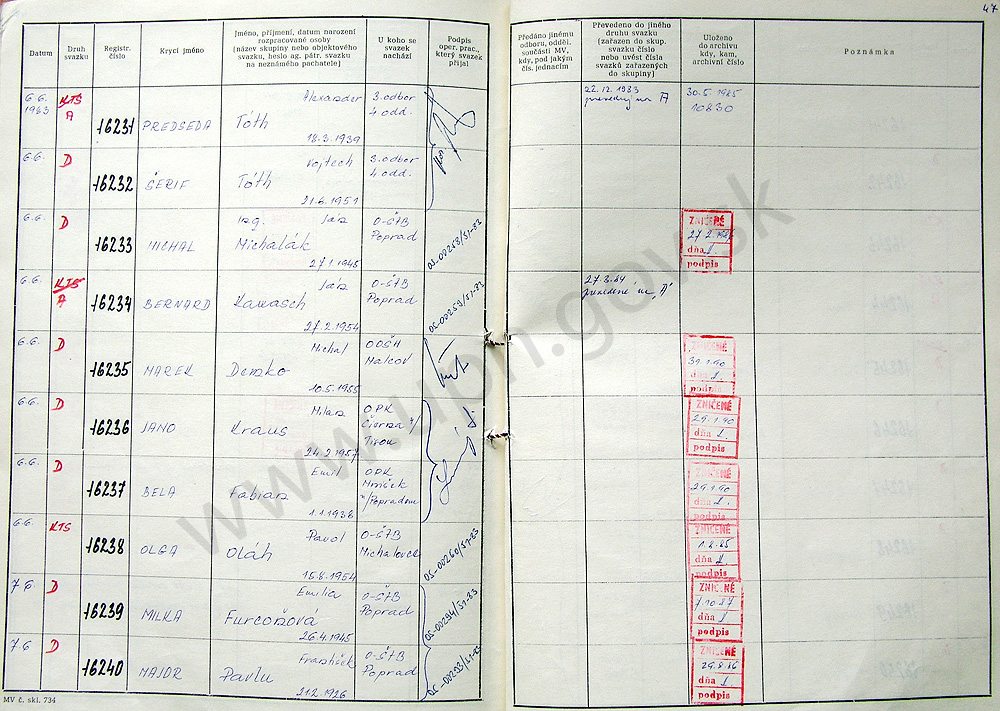 47
Datum
Druh svazku
Registr. číslo
Krycí jméno
Jméno, příjmení, datum narození
rozpracované osoby
(název skupiny nebo objektového
svazku, heslo ag. pátr. svazku
na neznámého pachatele)
U koho se
svazek
nachází
Podpis
oper. prac.,
který svazek
přijal
Předáno jinému
odboru, odděl.
součásti MV,
kdy, pod jakým
čís. jednacím
Převedeno do jiného
druhu svazku
(zařazen do skup.
svazku číslo
nebo uvést čísla
svazků zařazených
do skupiny)
Uloženo
do archivu
kdy, kam,
archivní číslo
Poznámka
6.6. 1983
KTS
A
16231
PREDSEDA
Alexander
Tóth
18.3.1939
3. odbor
4. odd.
22.12.1983
na A
30.5.1985
10830
6.6.
D
16232
ŠERIF
Vojtech
Tóth
21.6.1951
3. odbor
4. odd.
6.6.
D
16233
MICHAL
Ing. Ján
Michalák
27.1.1945
O-ŠTB
Poprad
ZNIČENÉ
dňa
podpis
6.6.
KTS
A
16234
BERNARD
Ján
27.2.1954
O-ŠTB
Poprad
OS-00259/S1-83
27.3.84
prevedené na "A"
6.6.
D
16235
MAREK
Michal
Demko
10.5.1955
Malcov
ZNIČENÉ
dňa
podpis
6.6.
D
16236
JANO
Milan
Kraus
24.2.1957
OPK
Čierna n/
Tisou
ZNIČENÉ
29.1.90
dňa
podpis
6.6.
D
16237
BELA
Emil
Fabian
1.1.1936
OPK
n/Popradom
ZNIČENÉ
29.1.90
dňa
podpis
6.6.
KTS
16238
OLGA
Pavol
Oláh
15.8.1954
O-ŠTB
Michalovce
OS-00260/S1-83
ZNIČENÉ
1.8.85
dňa
podpis
7.6.
D
16239
MILKA
Emilia
Furcoňová
26.4.1945
O-ŠTB
Poprad
OS-00294/S1-83
ZNIČENÉ
7.10.87
dňa
podpis
7.6
D
16240
MAJOR
František
Pavlu
21.2.1926
O-ŠTB
Poprad
OS-00293/S1-83
ZNIČENÉ
29.8.86
dňa
podpis
MV č. skl. 734
www.upn.gov.sk